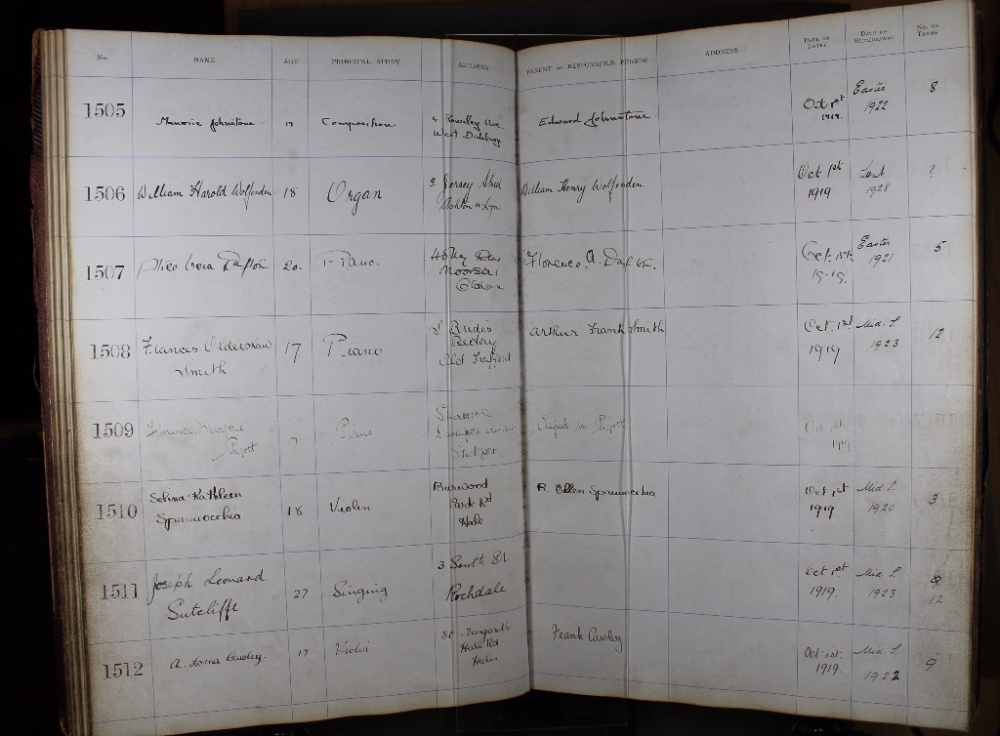 No. NAME AGE PRINCIPAL STUDY ADDRESS PARENT OR RESPONSIBLE PERSON ADDRESS DATE OF ENTRY DATE OF WITHDRAWAL NO. OF TERMS
1505 Maurice Johnstone Composition Edward Johnstone Oct 1st 1919. Easter 1922 8
West Didsbury
1506 William Harold Wolfenden 18 Organ 2 Jersey William Henry Wolfenden Oct 1st 1919 Lent 1928 ?
Ashton-u-Lyn
1507 20. Piano. Florence. A. Oct. 1st. 1919. Easter 1921 5
1508 Frances Smith 17 Piano St Bride's Rectory Old Trafford Arthur Frank Smith Oct. 1st 1919 Mid. S. 1923 12
1509 Piano Oct 1st 1919
1510 Selina Kathleen Spannocchia 18 Violin Burwood Park Rd Hale R. Ellen Spannocchia Oct 1st 1919 Mid S. 1920 3
1511 Joseph Leonard Sutcliffe 27 Singing 3 South St Rochdale Oct 1st 1919. Mid. S. 1923 12
1512 A. Lorna Cawley. 17 Violin Hale Rd Hale Frank Cawley Oct 1st. 1919. Mid S. 1922 9